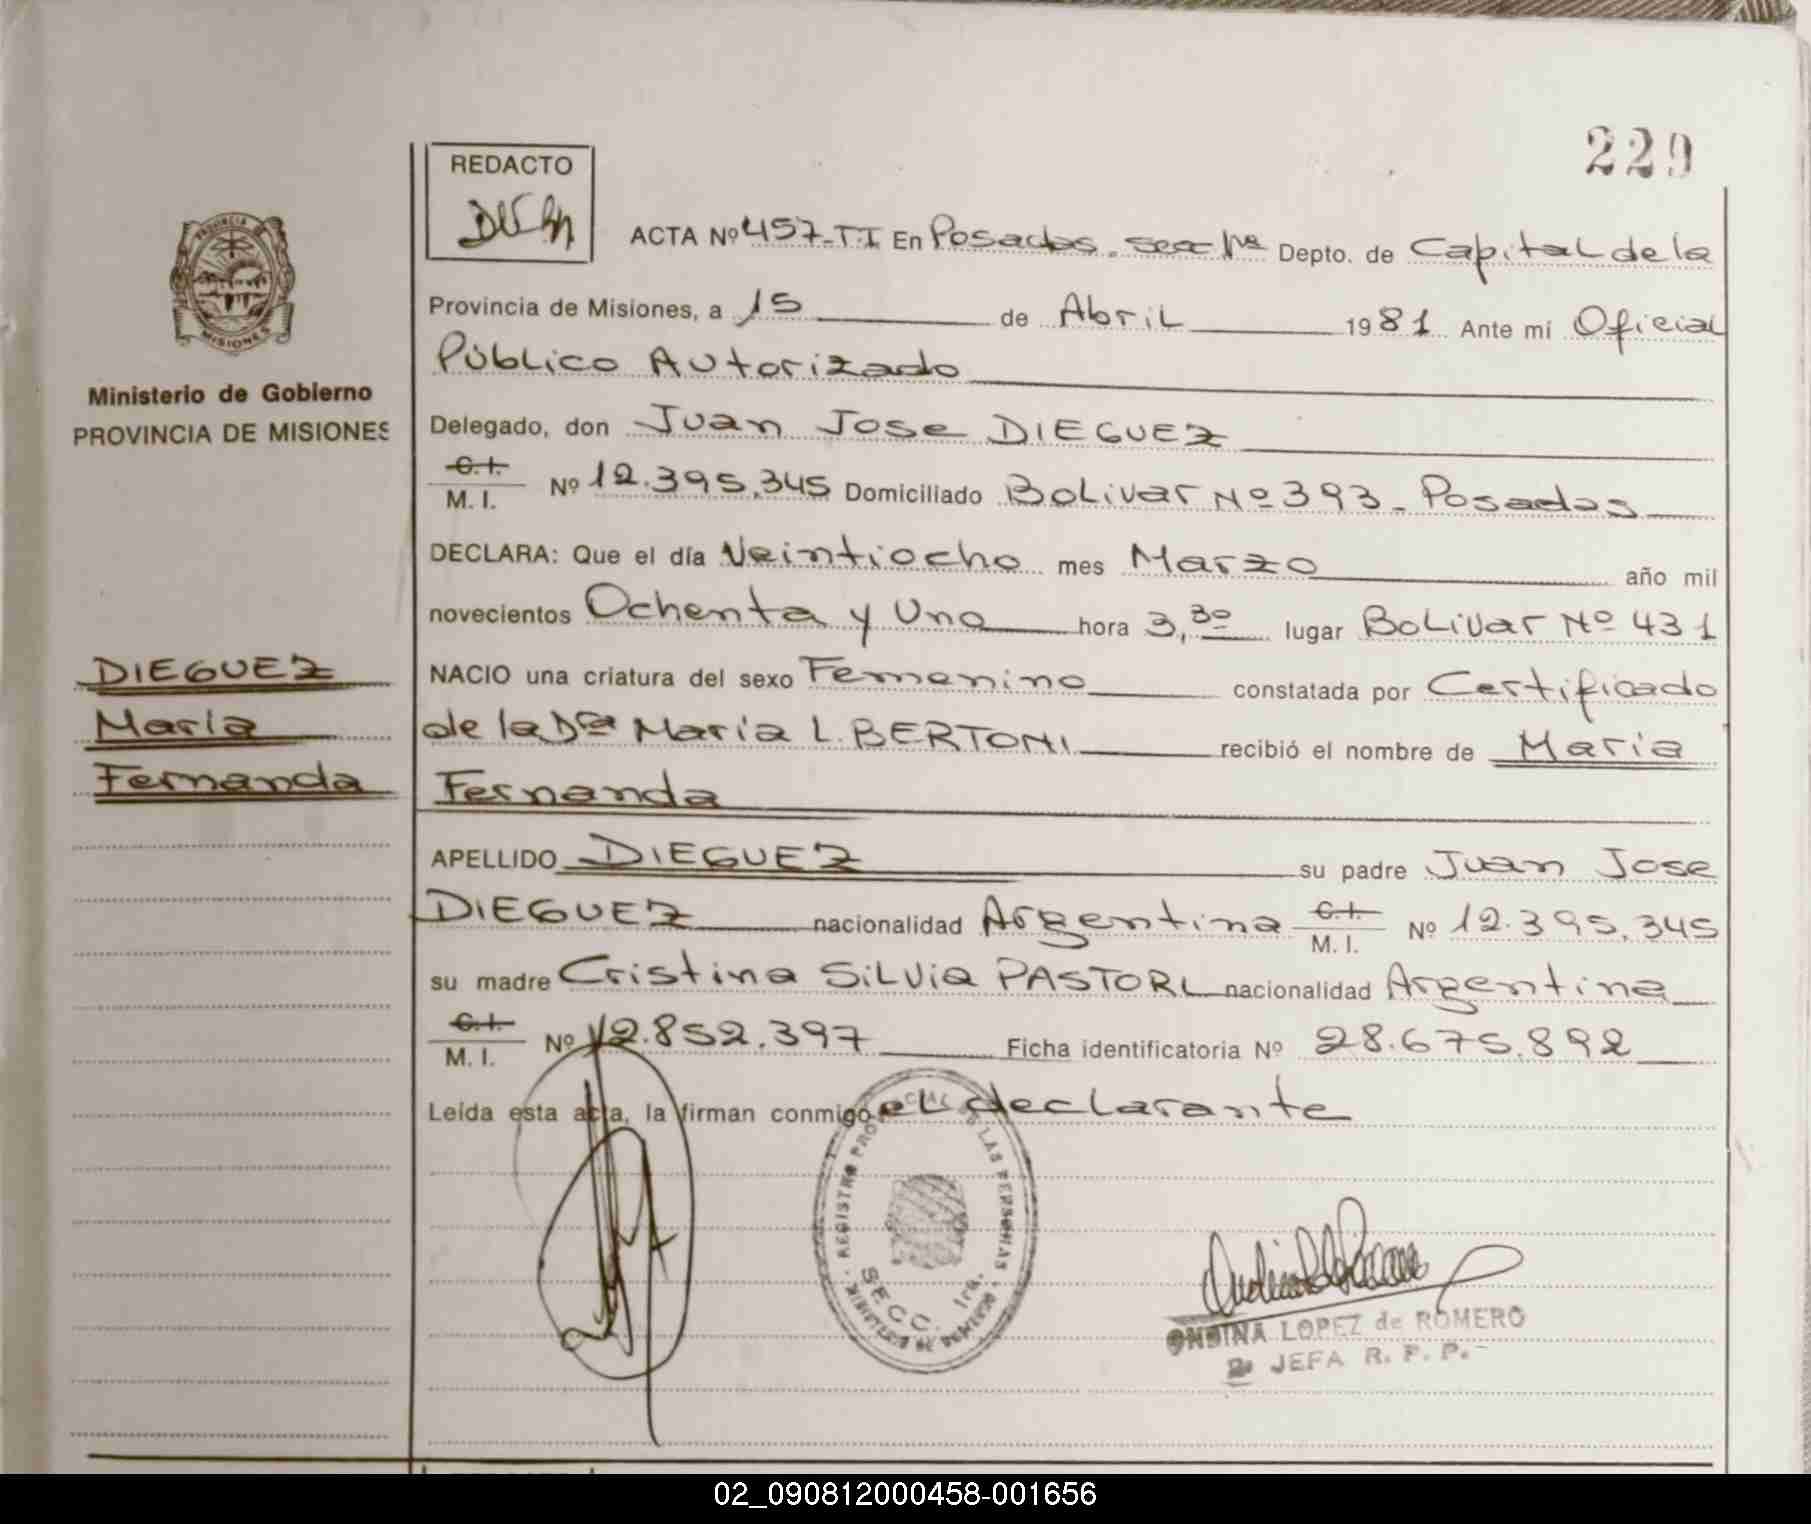 229
REDACTO
ACTA Nº 457-TI En Posadas. secc 1ra Depto. de Capital de la
PROVINCIA DE MISIONES
Provincia de Misiones, a 15 de Abril 1981 Ante mí Oficial
Público Autorizado
Ministerio de Gobierno
PROVINCIA DE MISIONES
Delegado, don Juan Jose DIEGUEZ
C.I. M. I. Nº 12.395.345 Domiciliado Bolivar Nº 393. Posadas
DECLARA: Que el día Veintiocho mes Marzo año mil
novecientos Ochenta y Uno hora 3,30 lugar Bolivar Nº 431
DIEGUEZ
María
Fernanda
NACIO una criatura del sexo Femenino constatada por Certificado
de la Dra María L. BERTONI recibió el nombre de María
Fernanda
APELLIDO DIEGUEZ su padre Juan Jose
DIEGUEZ nacionalidad Argentina C.I. M. I. Nº 12.395.345
su madre Cristina Silvia PASTORI nacionalidad Argentina
C.I. M. I. Nº 12.852.397 Ficha identificatoria Nº 28.675.892
Leída esta acta, la firman conmigo el declarante
REGISTRO PROVINCIAL DE LAS PERSONAS
MINISTERIO DE GOBIERNO
SECC. 1ra.
ONDINA LOPEZ de ROMERO
JEFA R. P. P.
02_090812000458-001656